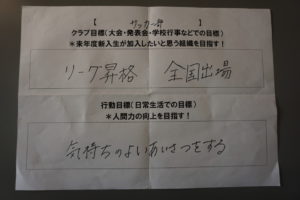 【 サッカー部 】
クラブ目標(大会・発表会・学校行事などでの目標)
*来年度新入生が加入したいと思う組織を目指す!
リーグ昇格 全国出場
行動目標(日常生活での目標)
*人間力の向上を目指す!
気持ちのよいあいさつをする